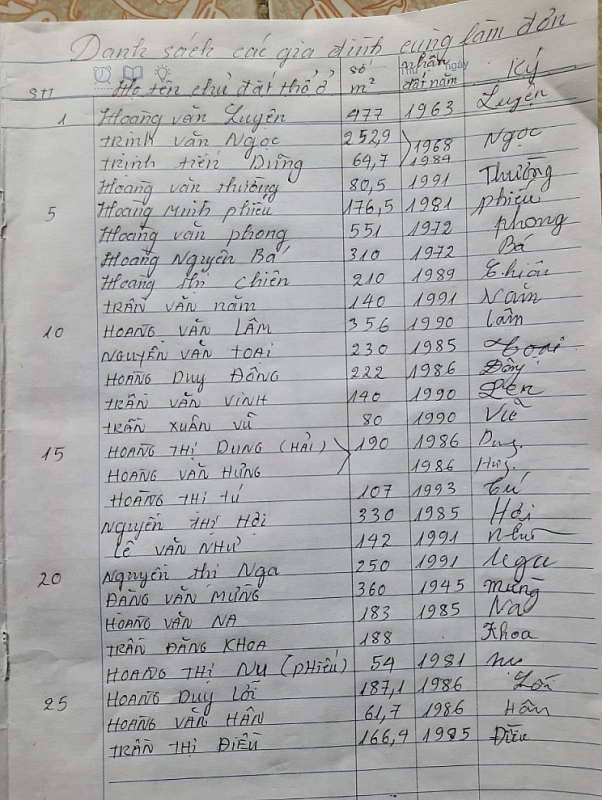 Danh sách các gia đình cùng làm đơn
STT Họ tên chủ đất thổ ở Số m² Nhận đất năm Ký
Thứ ngày
1 Hoàng văn Luyện 477 1963 Luyện
Trịnh văn Ngọc 252,9 1968 Ngọc
Trịnh tiến Dũng 64,7 1984
Hoàng văn thưởng 80,5 1991 Thưởng
5 Hoàng Minh phiếu 176,5 1981 phiếu
Hoàng văn phong 551 1972 phong
Hoàng Nguyên Bá 310 1972 Bá
Hoàng thị chiên 210 1989 Chiên
TRẦN VĂN năm 140 1991 Năm
10 HOÀNG VĂN LÂM 356 1990 Lâm
NGUYỄN VĂN TOẠI 230 1985 Toại
HOÀNG Duy ĐÔNG 222 1986 Đông
TRẦN VĂN VINH 140 1990
TRẦN XUÂN VŨ 80 1990 Vũ
15 HOÀNG THỊ DUNG (HẢI) 190 1986 Dung
HOÀNG VĂN HƯNG 1986 Hưng
HOÀNG THỊ TÚ 107 1993 Tú
Nguyễn THỊ Hợi 330 1985 Hợi
LÊ VĂN NHƯ 142 1991 Như
20 Nguyễn thị Nga 250 1991 Nga
ĐẶNG VĂN MỪNG 360 1945 mừng
HOÀNG VĂN NA 183 1985 Na
TRẦN ĐĂNG KHOA 188 Khoa
HOÀNG THỊ NỤ (PHIẾU) 54 1981 nụ
25 HOÀNG DUY LỢI 187,1 1986 Lợi
HOÀNG VĂN HÂN 61,7 1986 Hân
TRẦN THỊ ĐIỀU 166,4 1985 Điều